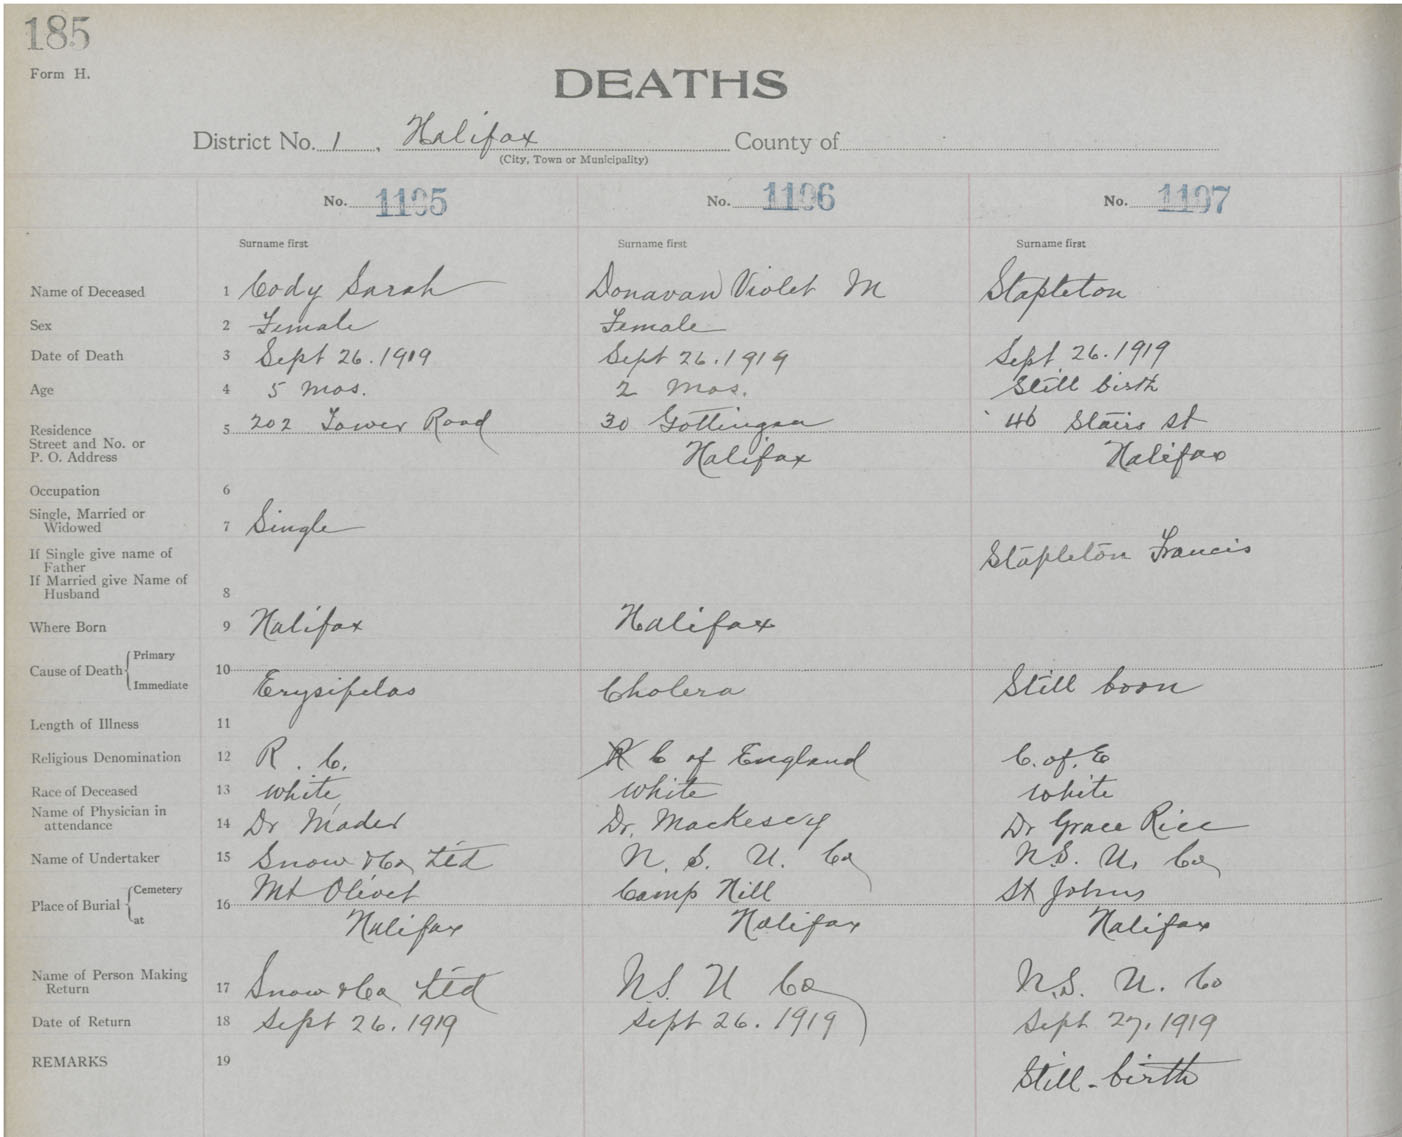 185
Form H.
DEATHS
District No. 1, Halifax County of
(City, Town or Municipality)
No. 1195 No. 1196 No. 1197
Surname first Surname first Surname first
Name of Deceased 1 Cody Sarah Donavan Violet M Stapleton
Sex 2 Female Female
Date of Death 3 Sept 26. 1919 Sept 26. 1919 Sept 26. 1919
Age 4 5 mos. 2 Mos. Still birth
Residence 5 202 Tower Road 30 Gottingen 46 Stairs St
Street and No. or
P. O. Address Halifax Halifax
Occupation 6
Single, Married or
Widowed 7 Single
If Single give name of
Father Stapleton Francis
If Married give Name of
Husband 8
Where Born 9 Halifax Halifax
Cause of Death Primary 10
Immediate Erysipelas Cholera Still born
Length of Illness 11
Religious Denomination 12 R. C. C of England C. of. E
Race of Deceased 13 white white white
Name of Physician in
attendance 14 Dr Mader Dr. Mackesey Dr Grace Rice
Name of Undertaker 15 Snow & Co Ltd N. S. U. Co N.S. U. Co
Place of Burial Cemetery 16 Mt Olivet Camp Hill St Johns
at Halifax Halifax Halifax
Name of Person Making
Return 17 Snow & Co Ltd N.S. U Co N.S. U. Co
Date of Return 18 Sept 26. 1919 Sept 26. 1919 Sept 27. 1919
REMARKS 19 Still-birth